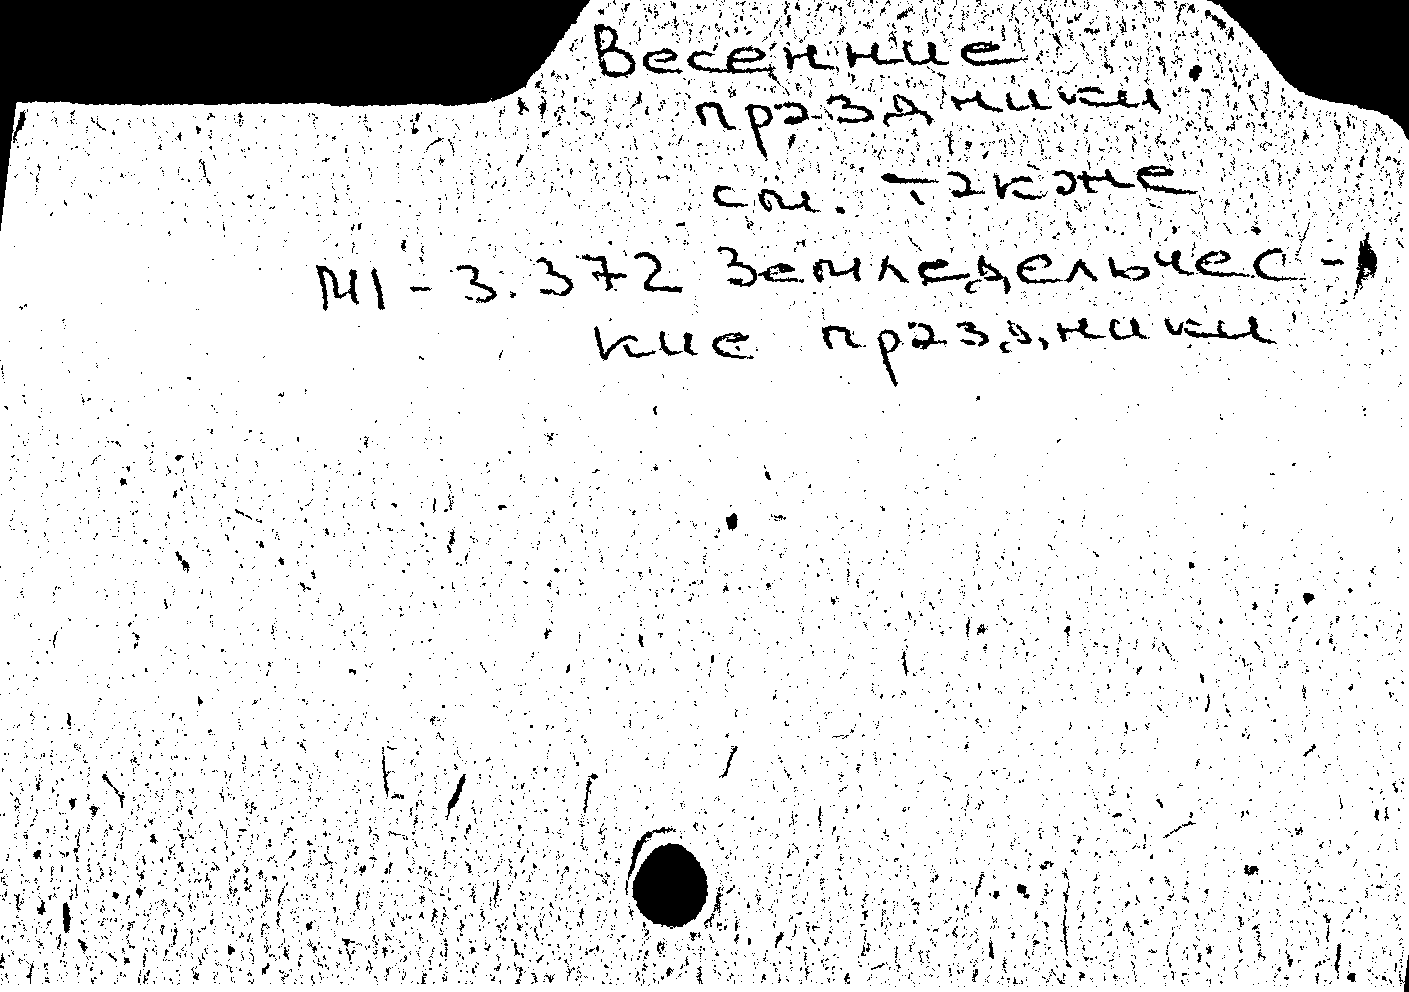 Весенние
праздники
см. также
М1-3.372 Земледельчес-
кие праздники